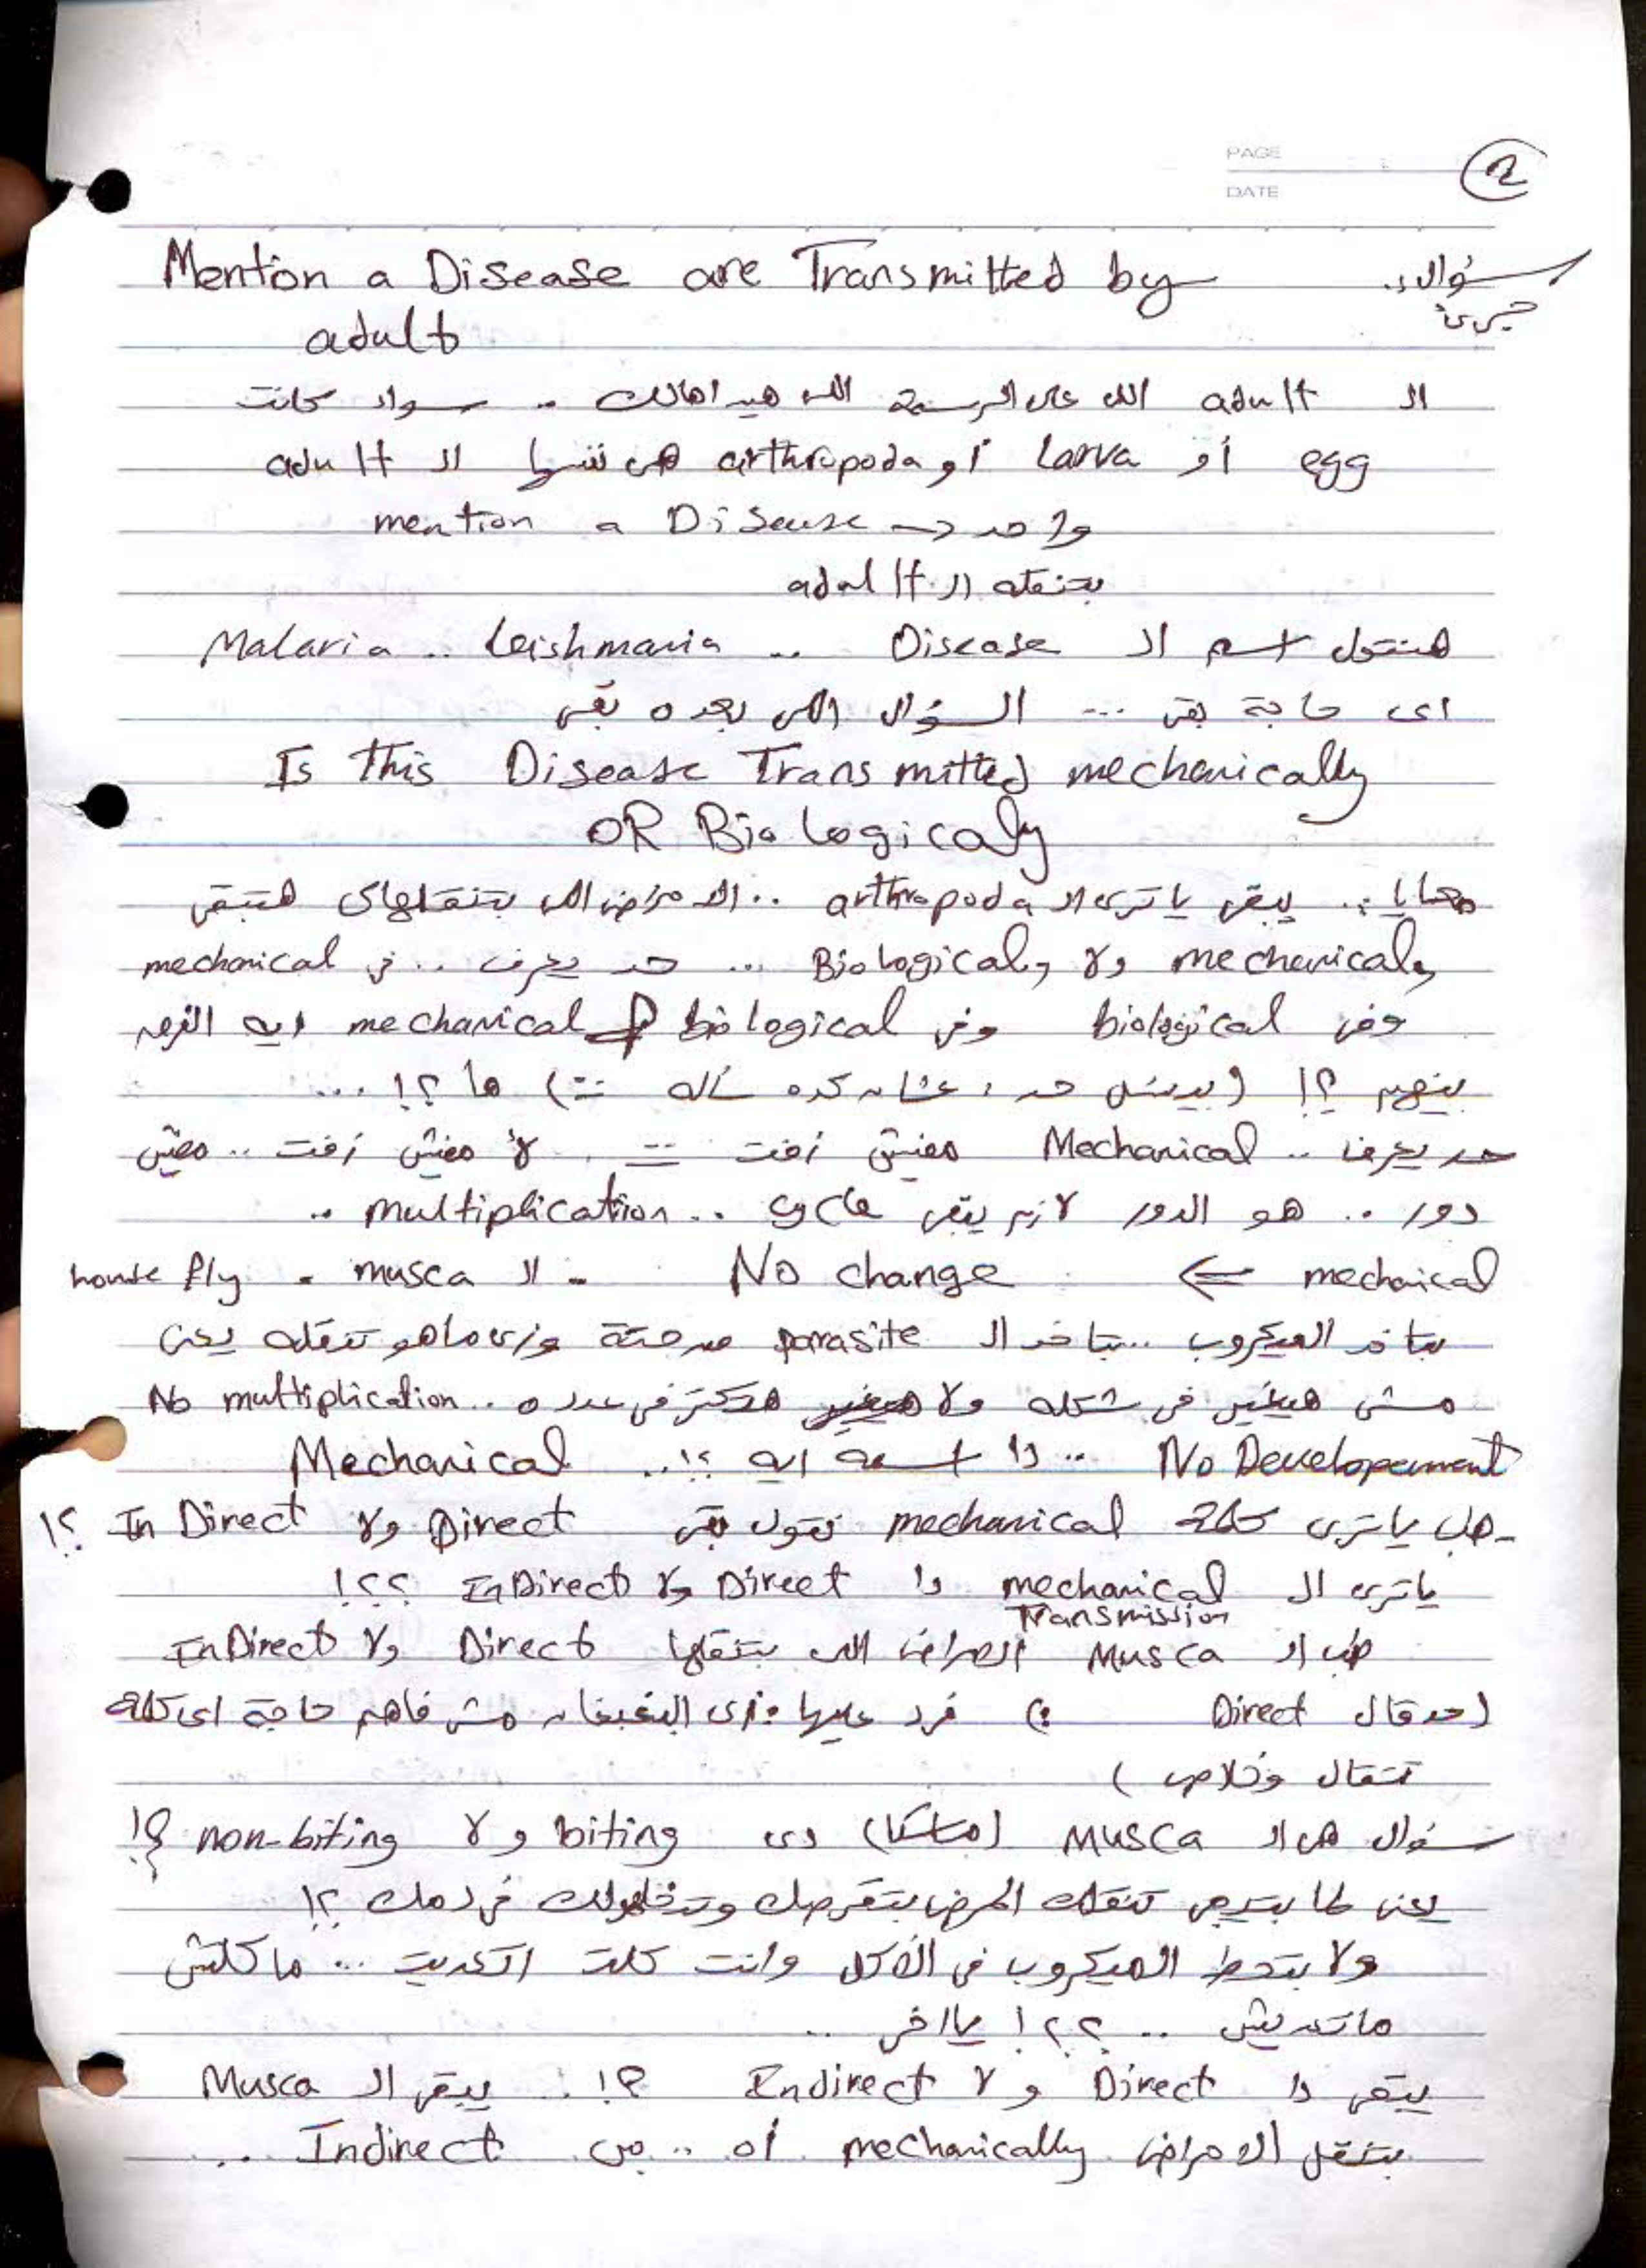 PAGE
DATE
2
سؤال ..
Mention a Disease are Transmitted by
adult
الـ adult اللى على الرسمة اللى هيداهالك .. سواء كانت
egg أو Larva أو arthropoda هى نفسها الـ adult
mention a Disease → واحد
بتنقله الـ adult
هنقول اسم الـ Disease .. Leishmania .. Malaria
اى حاجة بقى ... السؤال اللى بعده بقى
Is This Disease Transmitted mechanically
OR Biologicaly
معايا .. يبقى ياترى الـ arthropoda .. الامراض اللى بتنقلهاى هتبقى
mechanicaly ولا Biologicaly ... حد يعرف .. فى mechanical
وفى biological وفى biological mechanical ايه الفرق
بينهم ؟! (بيسئل حد ، عشان كده سأله) ها ؟! ...
حد يعرف .. Mechanical مفيش زفت .. لأ مفيش زفت .. مفيش
دور .. هو الدور لازم يبقى cycle .. multiplication ..
mechaical ⇐ No change - الـ musca - house fly
بتاخد الميكروب .. بتاخد الـ parasite من حتة وزى ماهو تنقله يعنى
مش هيغير فى شكله ولا هيكتر فى عدده .. No multiplication
No Developement .. دا اسمه ايه ؟! .. Mechanical
- هل ياترى كلمة mechanical نقول بقى Direct ولا In Direct ؟!
ياترى الـ mechanical دا Direct ولا InDirect ؟؟؟!
Transmission
طب الـ Musca الامراض اللى بتنقلها Direct ولا InDirect
(حد قال Direct) فرد عليها زى البغبغان مش فاهم حاجة اى كلمة
تتقال وخلاص)
سؤال هى الـ Musca (ماسكا) دى biting ولا non-biting ؟!
يعنى لما بتيجى تنقلك المرض بتقرصك وتدخلهولك فى دمك ؟!
ولا بتحط الميكروب فى الأكل وانت كلت اتعديت ... ماكلتش
ماتعديتش .. ؟؟! يااخى ..
يبقى دا Direct ولا Indirect ؟! . يبقى الـ Musca
بتنقل الامراض mechanically اه .. بس Indirect ..